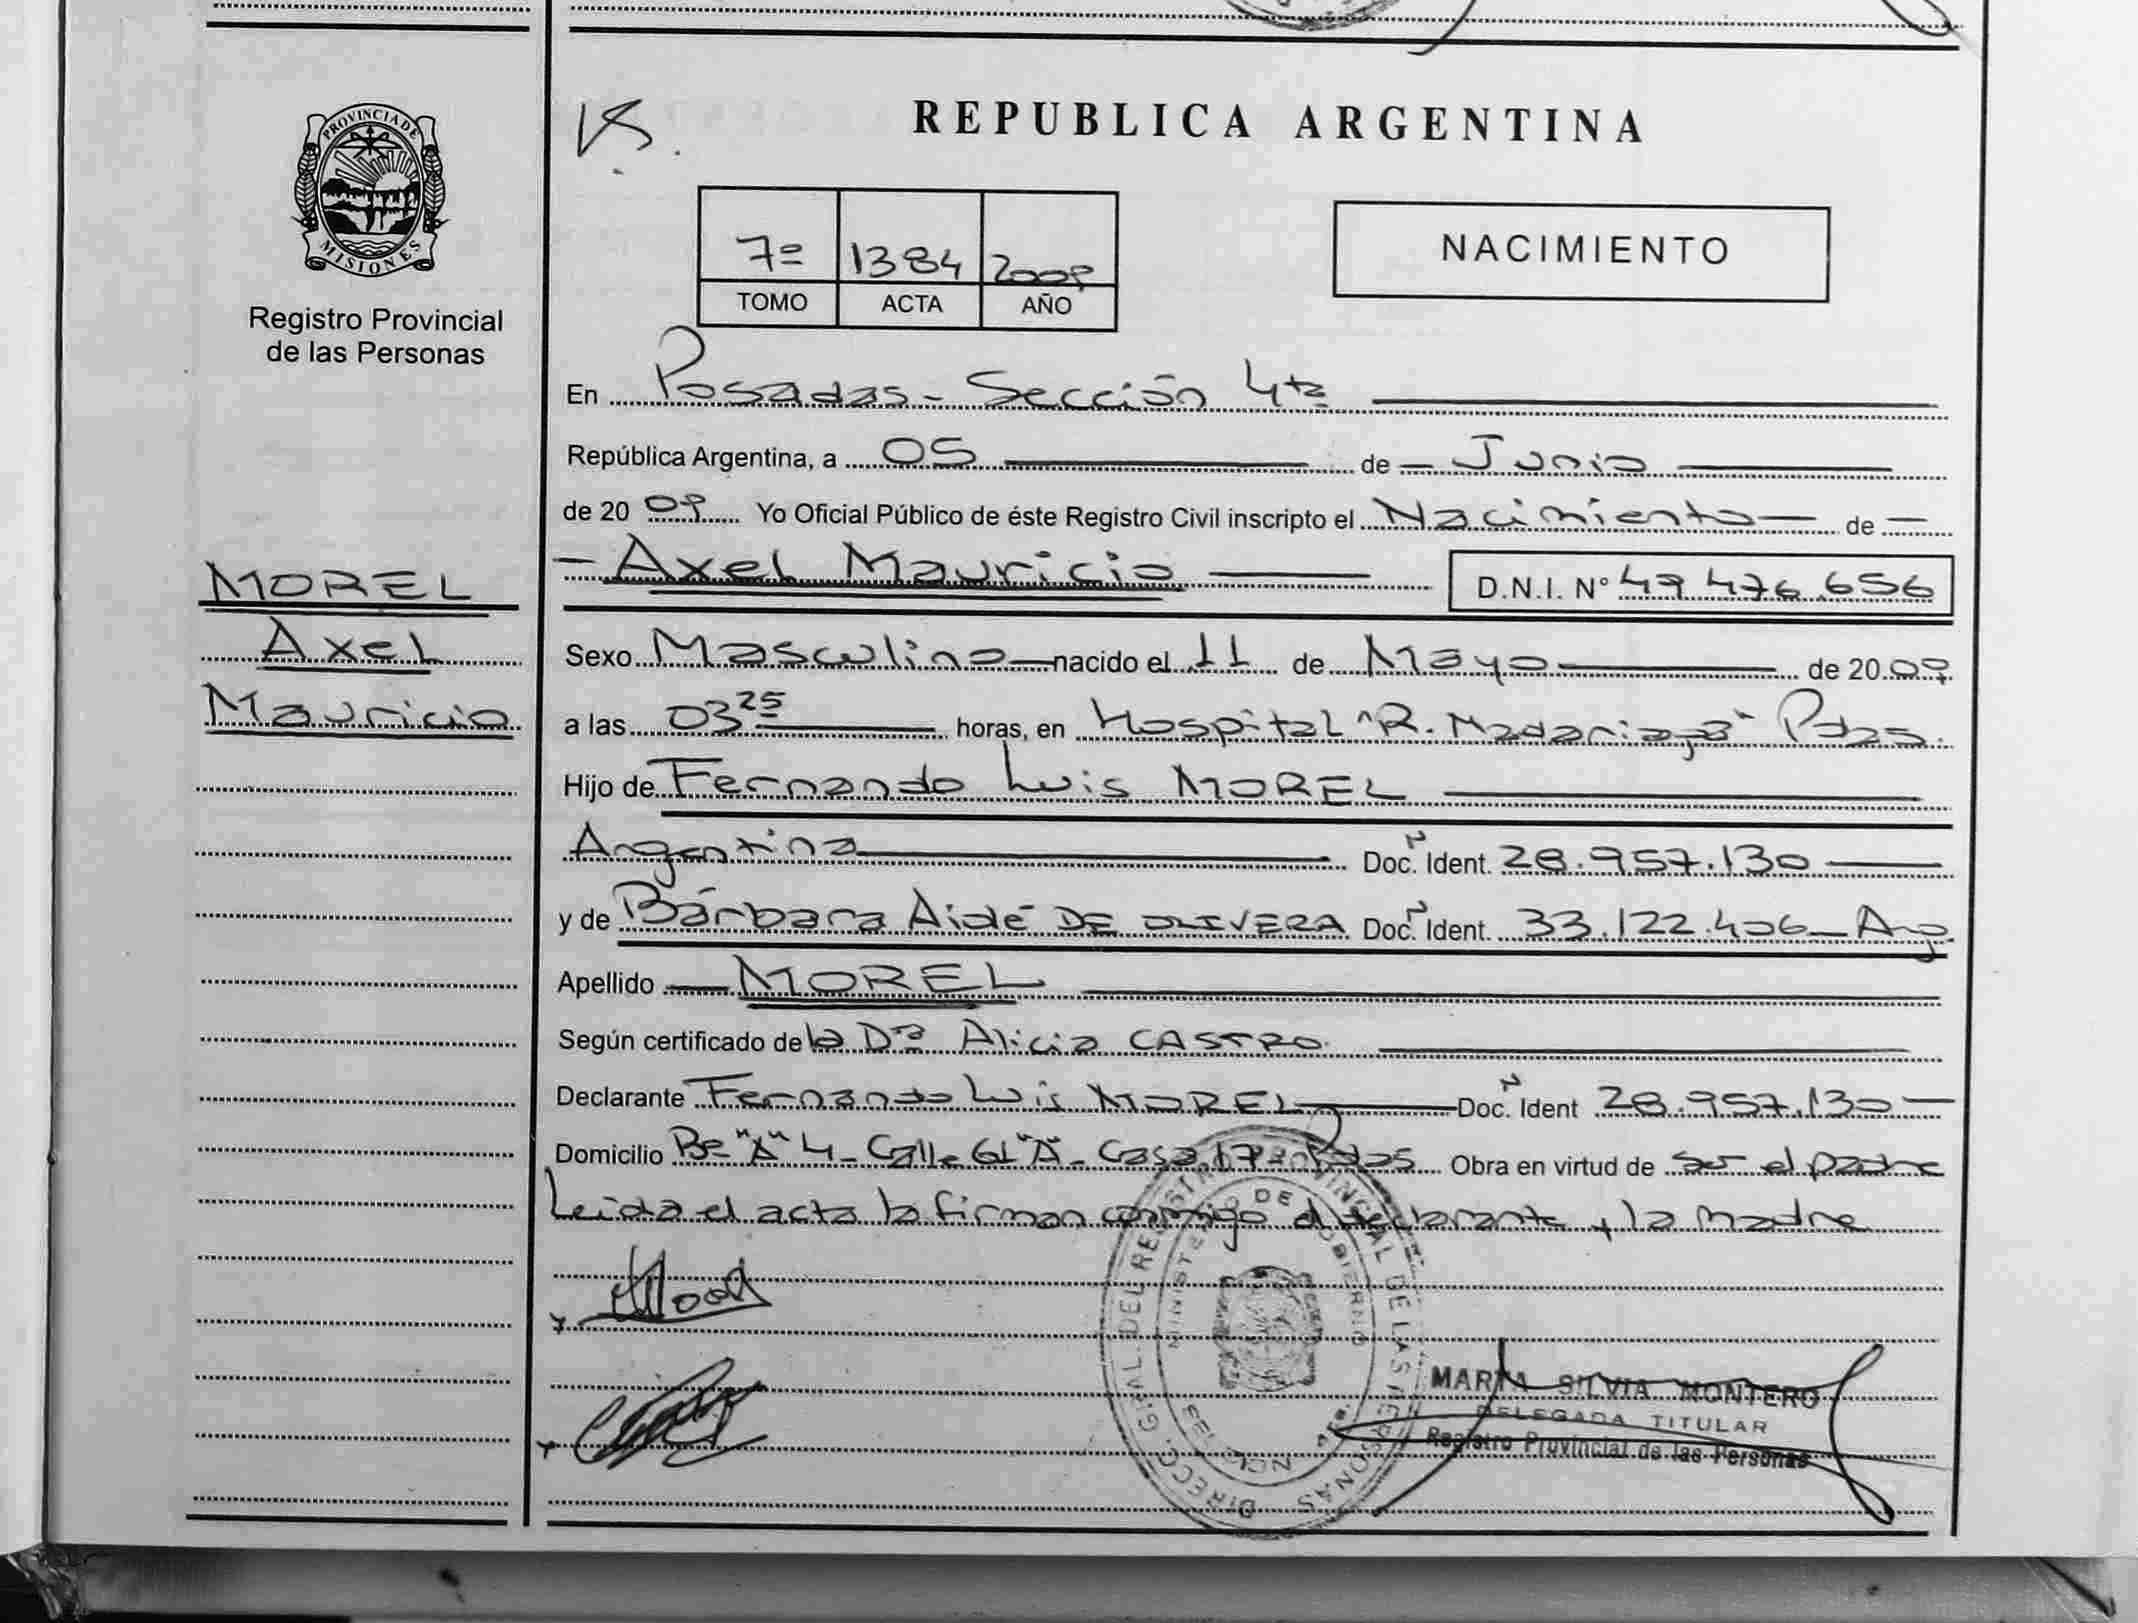 PROVINCIA DE
MISIONES
Registro Provincial
de las Personas
MOREL
Axel
Mauricio
REPUBLICA ARGENTINA
7º 1384 2009
TOMO ACTA AÑO
NACIMIENTO
En Posadas - Sección 4ta
República Argentina, a 05 de Junio
de 20 09 Yo Oficial Público de éste Registro Civil inscripto el Nacimiento de
Axel Mauricio D.N.I. Nº 49.476.656
Sexo Masculino nacido el 11 de Mayo de 20 09
a las 03 25 horas, en Hospital "R. Madariaga" Pdas.
Hijo de Fernando Luis MOREL
Argentina Doc. Ident. 28.957.130
y de Bárbara Aidé DE OLIVERA Doc. Ident. 33.122.406 - Arg.
Apellido MOREL
Según certificado de la Dra Alicia CASTRO
Declarante Fernando Luis MOREL Doc. Ident 28.957.130
Domicilio Bº "A" 4 - Calle 61 "A" - Casa 17 - Pdas Obra en virtud de ser el padre
Leida el acta la firman conmigo el declarante y la madre
DIRECC. GRAL. DEL REGISTRO PROVINCIAL DE LAS PERSONAS
MINISTERIO DE GOBIERNO
MARTA SILVIA MONTERO
DELEGADA TITULAR
Registro Provincial de las Personas